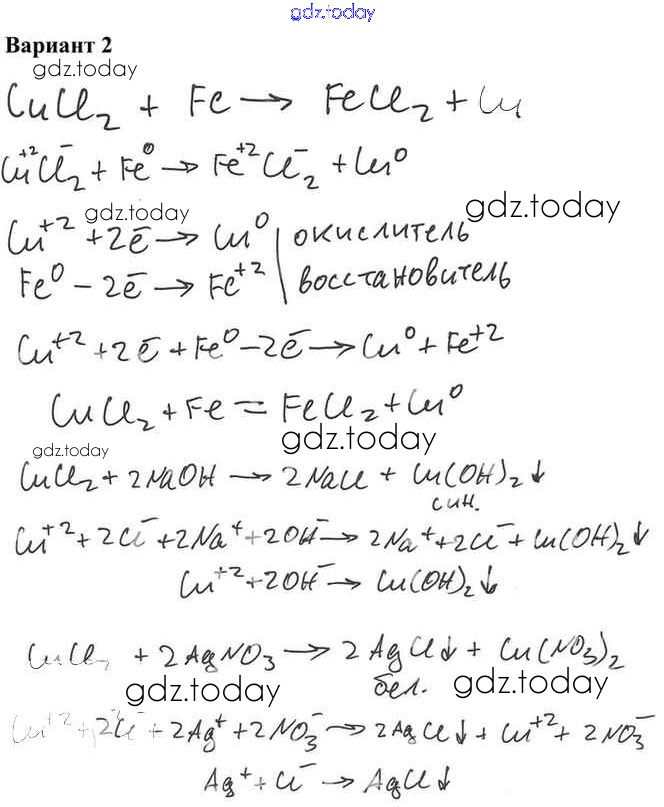 gdz.today
Вариант 2
gdz.today
CuCl₂ + Fe → FeCl₂ + Cu
Cu⁺²Cl⁻₂ + Fe⁰ → Fe⁺²Cl⁻₂ + Cu⁰
gdz.today
gdz.today
Cu⁺² + 2ē → Cu⁰ | окислитель
Fe⁰ − 2ē → Fe⁺² | восстановитель
Cu⁺² + 2ē + Fe⁰ − 2ē → Cu⁰ + Fe⁺²
CuCl₂ + Fe = FeCl₂ + Cu⁰
gdz.today
gdz.today
CuCl₂ + 2NaOH → 2NaCl + Cu(OH)₂↓
син.
Cu⁺² + 2Cl⁻ + 2Na⁺ + 2OH⁻ → 2Na⁺ + 2Cl⁻ + Cu(OH)₂↓
Cu⁺² + 2OH⁻ → Cu(OH)₂↓
CuCl₂ + 2AgNO₃ → 2AgCl↓ + Cu(NO₃)₂
бел.
gdz.today
gdz.today
Cu⁺² + 2Cl⁻ + 2Ag⁺ + 2NO₃⁻ → 2AgCl↓ + Cu⁺² + 2NO₃⁻
Ag⁺ + Cl⁻ → AgCl↓